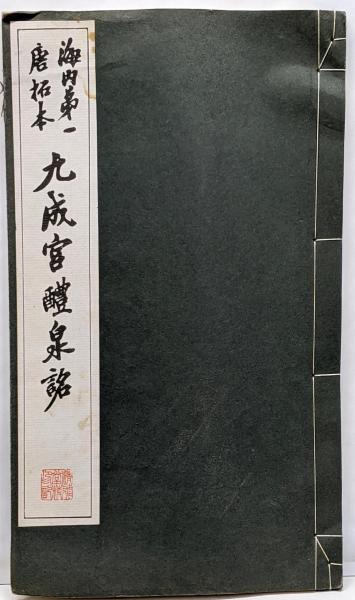 海内第一
唐拓本
九成宮醴泉銘